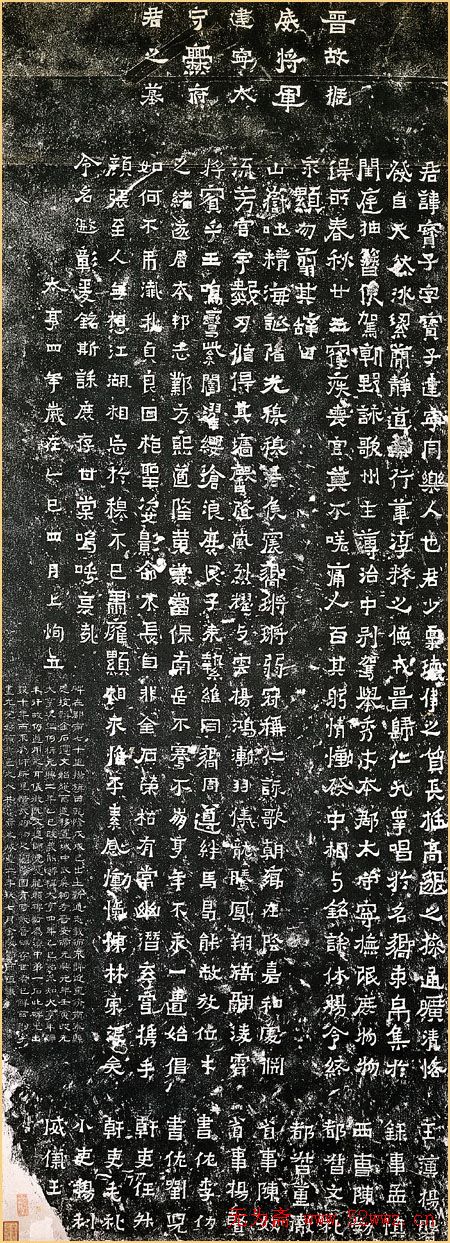 晉故振
威將軍
建寧太
守爨府
君之墓
君諱寶子字寶子建寧同樂人也君少稟瓌偉之質長挺高邈之操通曠清恪
發自天然冰絜簡靜道兼行葦淳粹之德戎晉歸仁九皋唱於名嚮束帛集於
閨庭抽簪俟駕朝野詠歌州主簿治中別駕舉秀才本郡太守寧撫氐庶物物
得所春秋廿五寢疾喪官莫不嗟痛人百其躬情慟發中相与銘誄休揚令終
永顯勿翦其辭曰
山嶽吐精海誕陼光穆穆君侯震嚮鏘鏘弱冠稱仁詠歌朝鄉在陰嘉和處淵
流芳宮宇數仞循得其墻馨隨風烈耀与雲揚鴻漸羽儀龍騰鳳翔矯翮凌霄
將賓乎王鳴鸞紫闥濯纓滄浪庶民子來縶維同嚮周遵絆馬曷能赦放位才
之緒遂居本邦志鄴方熙道隆黃裳當保南岳不騫不崩享年不永一匱始倡
如何不弔殲我貞良回枹聖姿影命不長自非金石榮枯有常幽潛玄穹攜手
顏張至人無想江湖相忘於穆不已肅雍顯相永惟平素感慟忾慷林宗沒矣
令名遐彰爰銘斯誄庶存甘棠嗚呼哀哉
太亨四年歲在乙巳四月上恂立
主簿楊磐
錄事孟慎
西曹陳勃
都督文禮
都督董徹
省事陳奴
省事楊賢
書佐李仂
書佐劉兒
幹吏任升
幹吏毛禮
小吏楊利
威儀王
无为斋 www.52wwz.cn